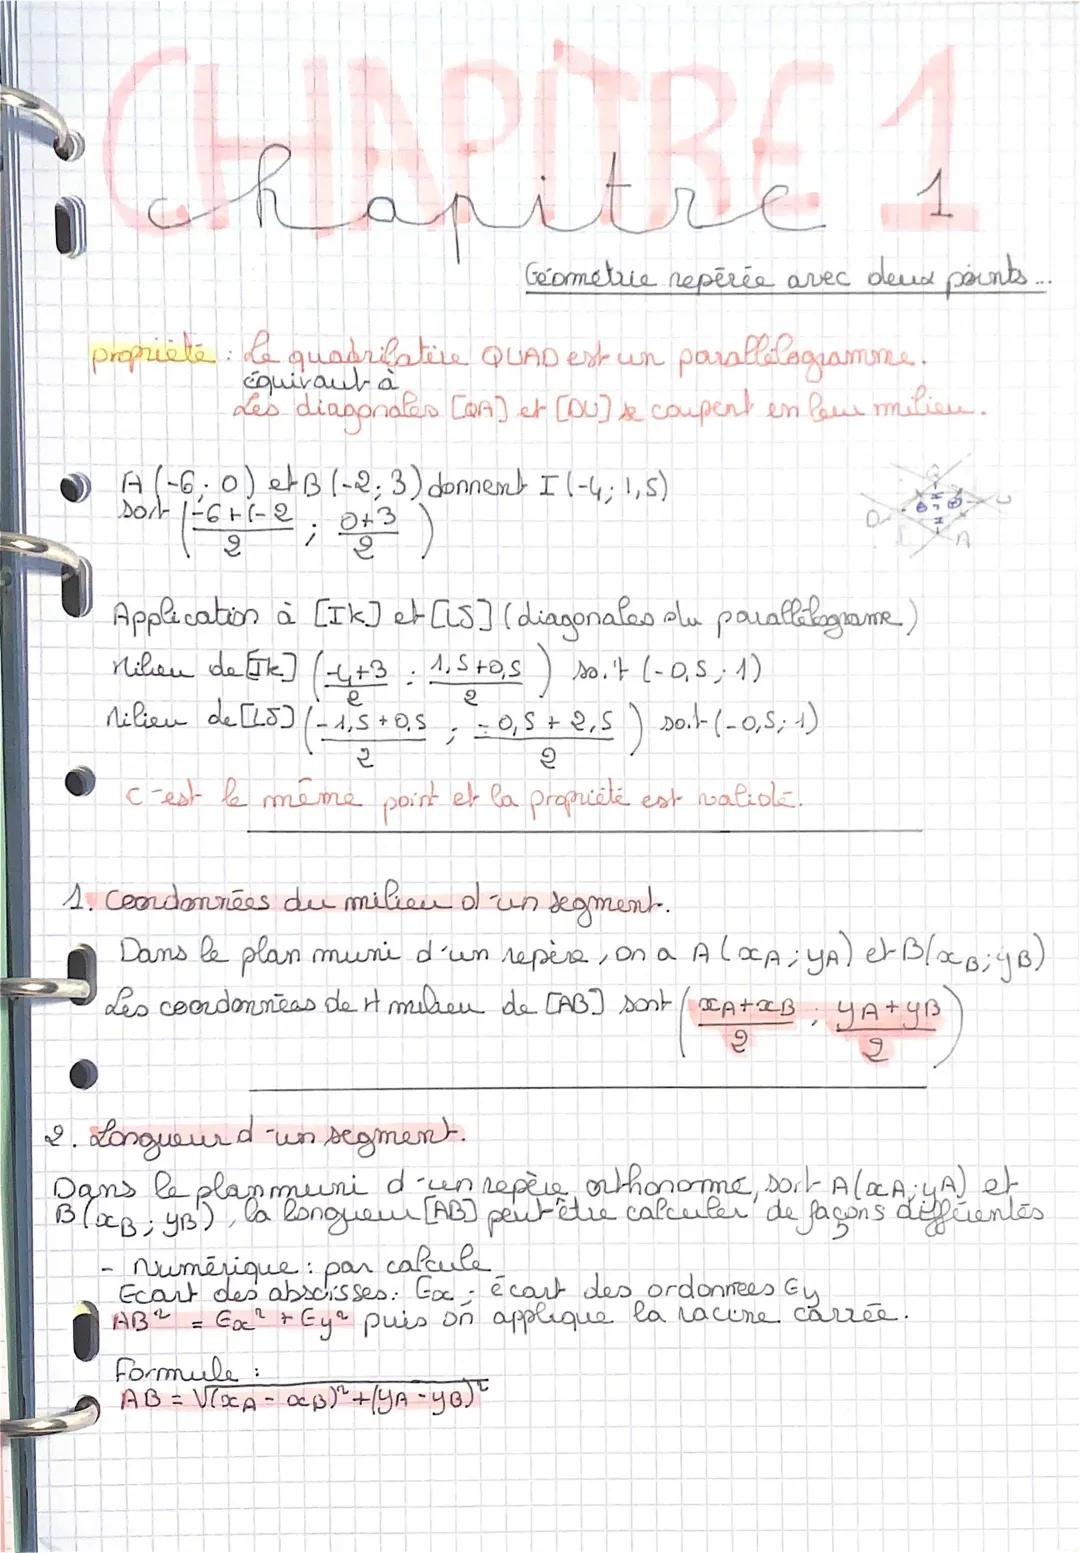 CHAPITRE 1
chapitre 1
Géométrie repérée avec deux points...
propriété : Le quadrilatère QUAD est un parallélogramme.
équivaut à
Les diagonales [QA] et [DU] se coupent en leur milieu.
A (-6; 0) et B (-2; 3) donnent I (-4; 1,5)
soit (-6+(-2 / 2 ; 0+3 / 2)
Q
D
U
A
Application à [IK] et [LJ] (diagonales du parallélograme)
Milieu de [IK] (-4+3 / 2 ; 1,5+0,5 / 2) soit (-0,5; 1)
Milieu de [LJ] (-1,5+0,5 / 2 ; -0,5+2,5 / 2) soit (-0,5; 1)
c'est le même point et la propriété est validé.
1. Coordonnées du milieu d'un segment.
Dans le plan muni d'un repère, on a A(xA; yA) et B(xB; yB)
Les coordonnées de M milieu de [AB] sont (xA+xB / 2 ; yA+yB / 2)
2. Longueur d'un segment.
Dans le plan muni d'un repère orthonormé, soit A(xA; yA) et
B(xB; yB), la longueur [AB] peut être calculer de façons différentes
- Numérique : par calcule
Ecart des abscisses: Ex ; écart des ordonnees Ey
AB² = Ex² + Ey² puis on applique la racine carrée.
Formule :
AB = √(xA - xB)² + (yA - yB)²